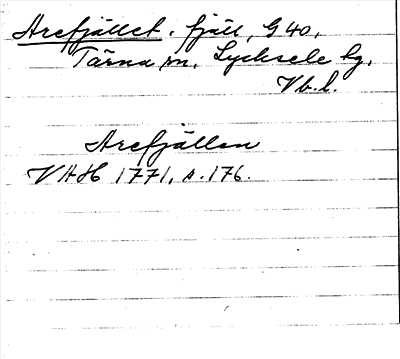 Arefjället. fjäll, G 40,
Tärna sn, Lycksele lg,
Vb.l.
Arefjällen
VAH 1771, s. 176.